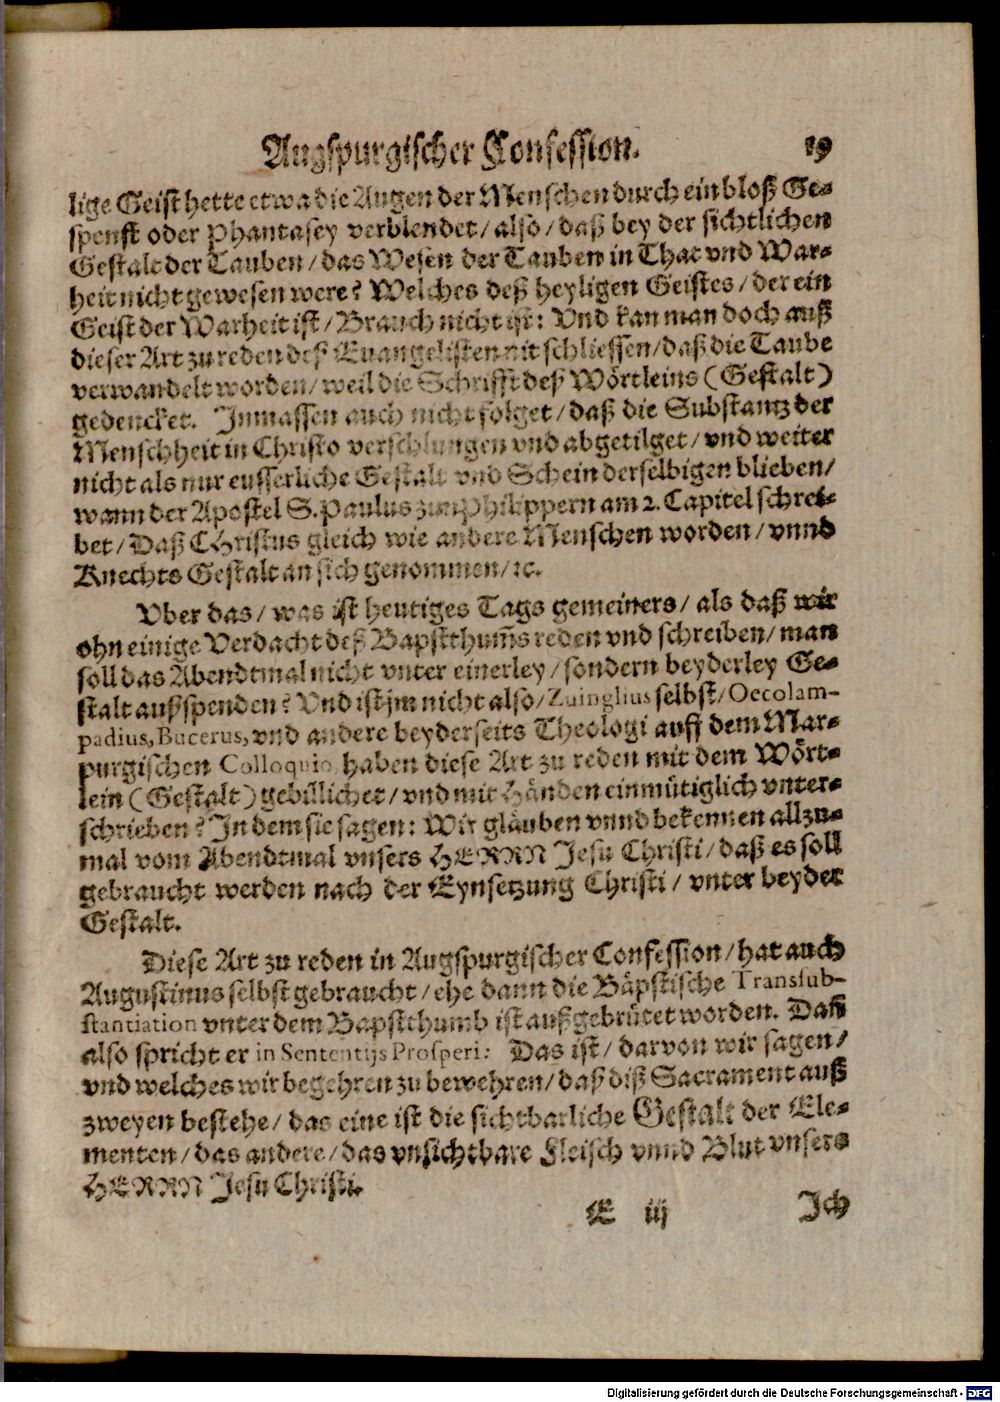 Augspurgischer Confession. 19
lige Geist hette etwa die Augen der Menschen durch ein bloß Ge-
spenst oder Phantasey verblendet/ also/ daß bey der sichtlichen
Gestalt der Tauben/ das Wesen der Tauben in That vnd War-
heit nicht gewesen were? Welches deß heyligen Geistes/ der ein
Geist der Warheit ist/ Brauch nicht ist: Vnd kan man doch auß
dieser Art zu reden deß Euangelisten nit schliessen/ daß die Taube
verwandelt worden/ weil die Schrifft deß Wörtleins (Gestalt)
gedencket. Inmassen auch nicht folget/ daß die Substantz der
Menschheit in Christo verschlungen vnd abgetilget/ vnd weiter
nicht als nur eusserliche Gestalt vnd Schein derselbigen blieben/
wann der Apostel S. Paulus zun Philippern am 2. Capitel schrei-
bet/ Daß CHristus gleich wie andere Menschen worden/ vnnd
Knechts Gestalt an sich genommen/ ꝛc.
Vber das/ was ist heutiges Tags gemeiners/ als daß wir
ohn einige Verdacht deß Bapstthum̃s reden vnd schreiben/ man
soll das Abendtmal nicht vnter einerley/ sondern beyderley Ge-
stalt außspenden? Vnd ist jm nicht also/ Zuinglius selbst/ Oecolam-
padius, Bucerus, vnd andere beyderseits Theologi auff dem Mar-
purgischen Colloquio haben diese Art zu reden mit dem Wört-
lein (Gestalt) gebillichet/ vnd mit Händen einmütiglich vnter-
schrieben? In dem sie sagen: Wir gläuben vnnd bekennen allzu-
mal vom Abendtmal vnsers HERRN Jesu Christi/ daß es soll
gebraucht werden nach der Eynsetzung Christi/ vnter beyder
Gestalt.
Diese Art zu reden in Augspurgischer Confession/ hat auch
Augustinus selbst gebraucht/ ehe dann die Bäpstische Transsub-
stantiation vnter dem Bapstthumb ist außgebrütet worden. Dañ
also spricht er in Sententijs Prosperi: Das ist/ darvon wir sagen/
vnd welches wir begehren zu bewehren/ daß diß Sacrament auß
zweyen bestehe/ das eine ist die sichtbarliche Gestalt der Ele-
menten/ das andere/ das vnsichtbare Fleisch vnnd Blut vnsers
HERRN Jesu Christi.
E iij Ich
Digitalisierung gefördert durch die Deutsche Forschungsgemeinschaft - DFG